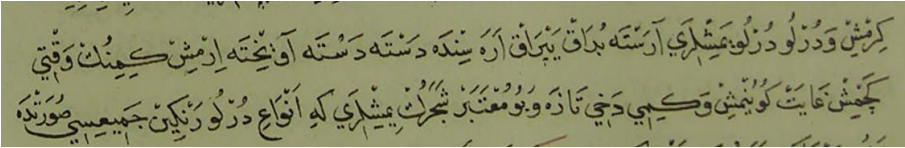 كِرْمِشْ وَدُرْلُو دُرْلُو يَمِشْلَرِي آرَسْتَه بُدَاقْ يَپْرَاقْ اَرَه سِنْدَه دَسْتَه دَسْتَه آوِيْخْتَه اِرْمِشْ كِمِنُكْ وَقْتِي
كَچْمِشْ غَايَتْ كُويُنْمِشْ وَكِمِي دَخِي تَازَه وَبُو مُعْتَبَرْ شَجَرَكْ يَمِشْلَرِي كِه اَنْوَاعِ دُرْلُو رَنْكِينْ جَمِيعِيسِي صُورَتْدَه